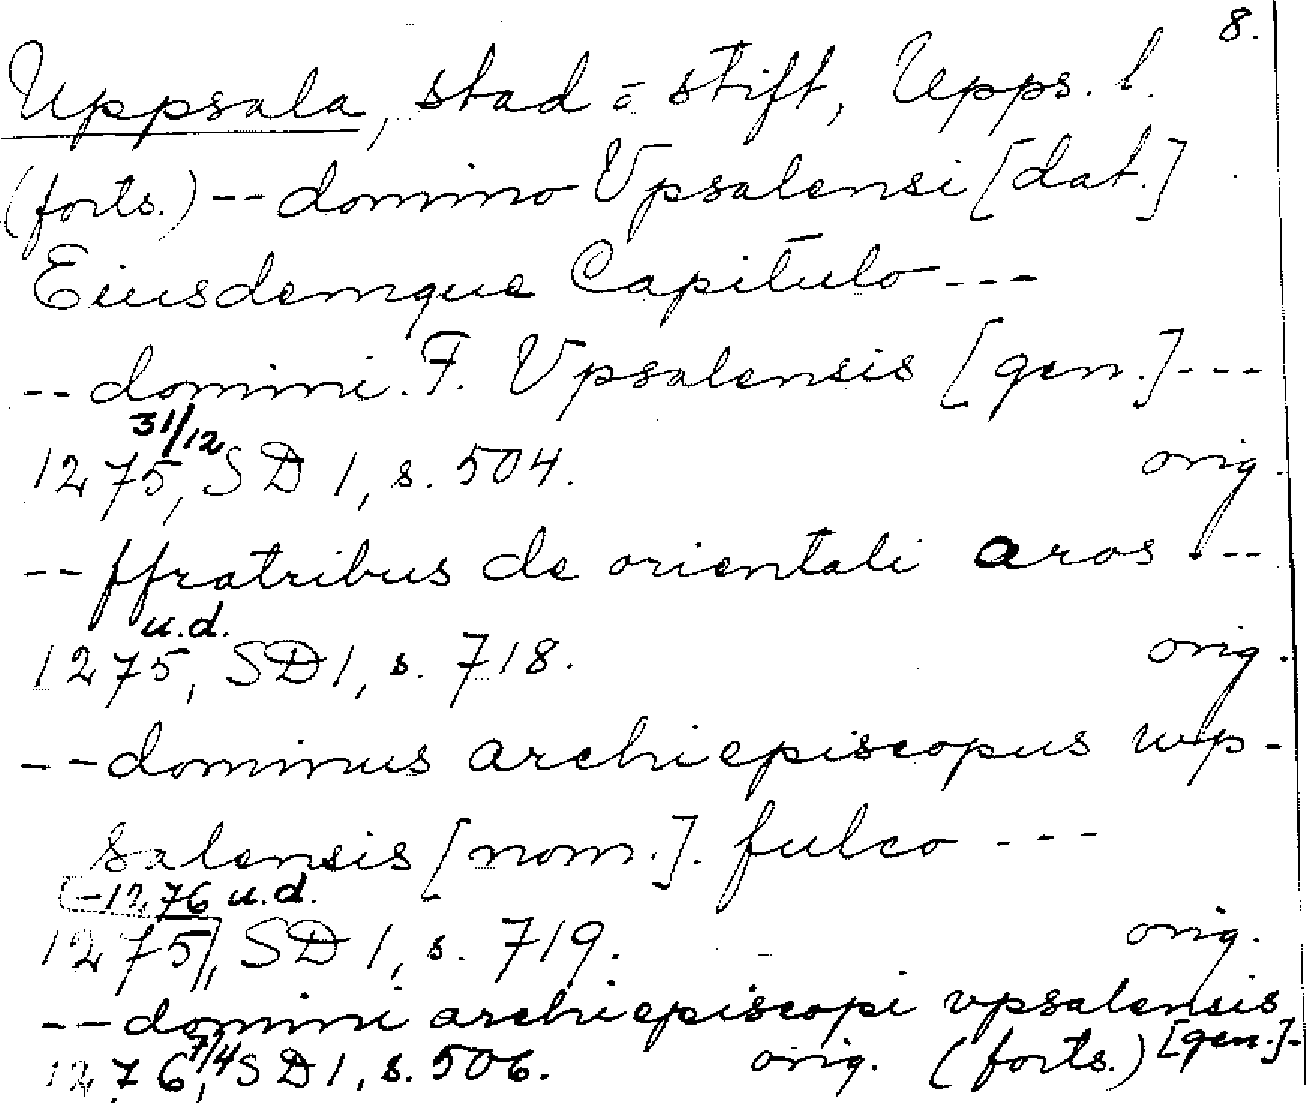 8.
Uppsala, stad o stift, Upps. l.
(forts.) -- domino Vpsalensi [dat.]
Eiusdemque Capitulo ---
-- domini. F. Vpsalensis [gen.] ---
31/12
1275, SD 1, s. 504. orig.
-- ffratribus de orientali aros ---
u.d.
1275, SD 1, s. 718. orig.
-- dominus archiepiscopus wp-
salensis [nom.]. fulco ---
-1276 u.d.
1275, SD 1, s. 719. orig.
-- domini archiepiscopi vpsalensis
7/4 [gen.]-
1276, SD 1, s. 506. orig. (forts.)